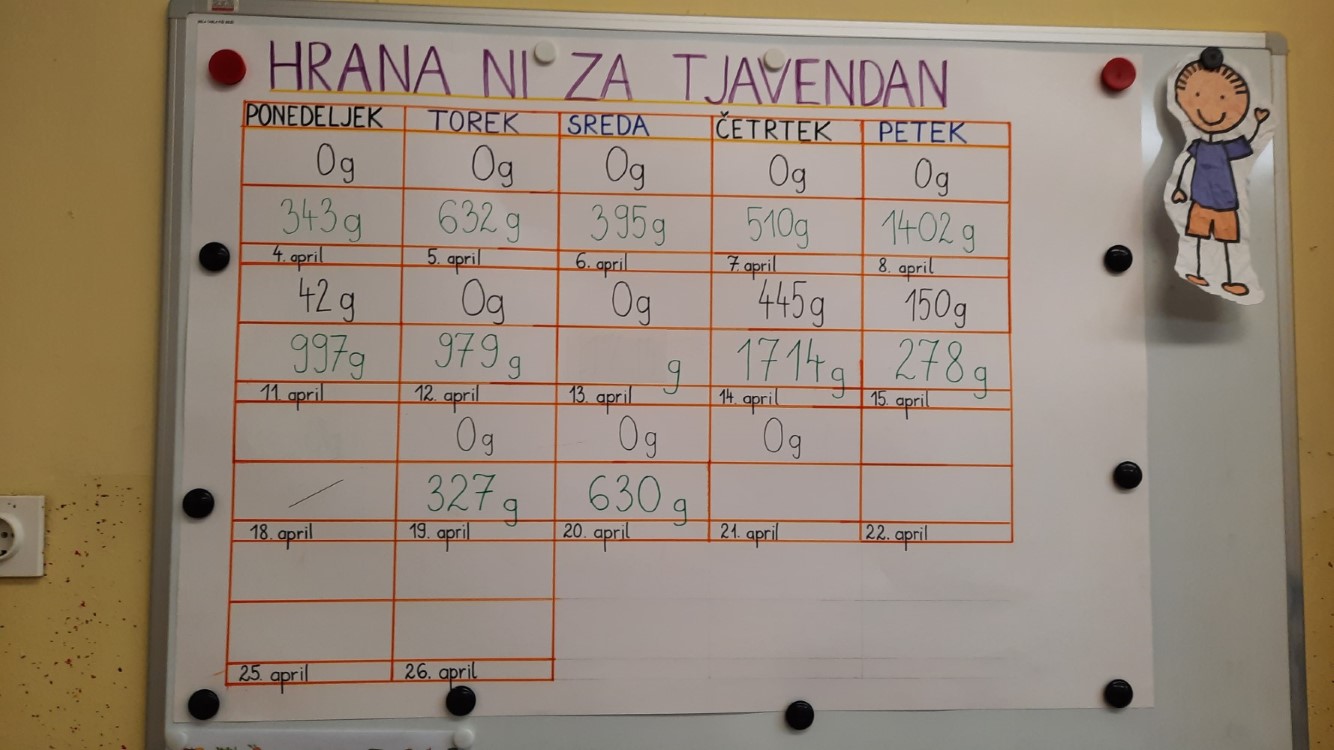 HRANA NI ZA TJAVENDAN
PONEDELJEK TOREK SREDA ČETRTEK PETEK
0g 0g 0g 0g 0g
343g 632g 395g 510g 1402g
4. april 5. april 6. april 7. april 8. april
42g 0g 0g 445g 150g
997g 979g g 1714g 278g
11. april 12. april 13. april 14. april 15. april
0g 0g 0g
/ 327g 630g
18. april 19. april 20. april 21. april 22. april
25. april 26. april